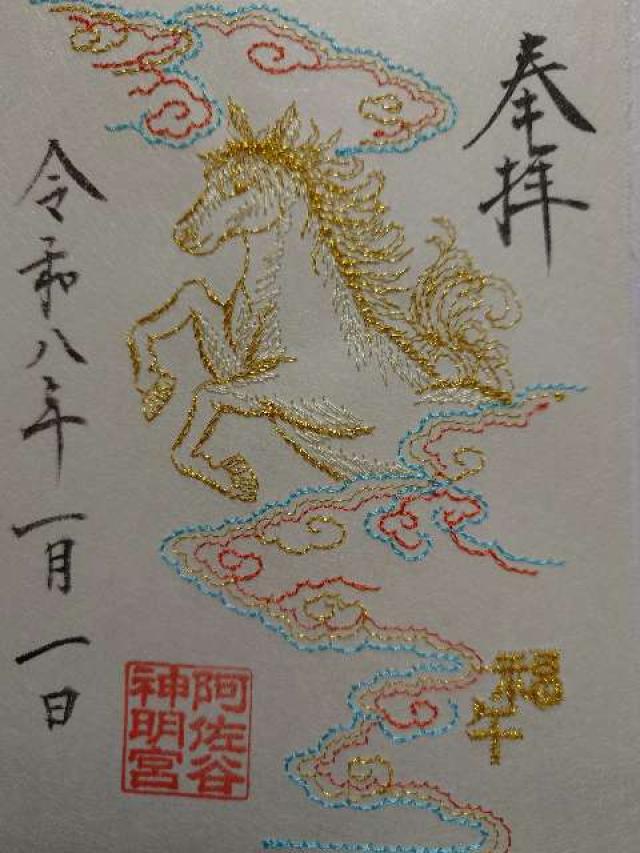 奉拝
福午
阿佐谷
神明宮
令和八年一月一日